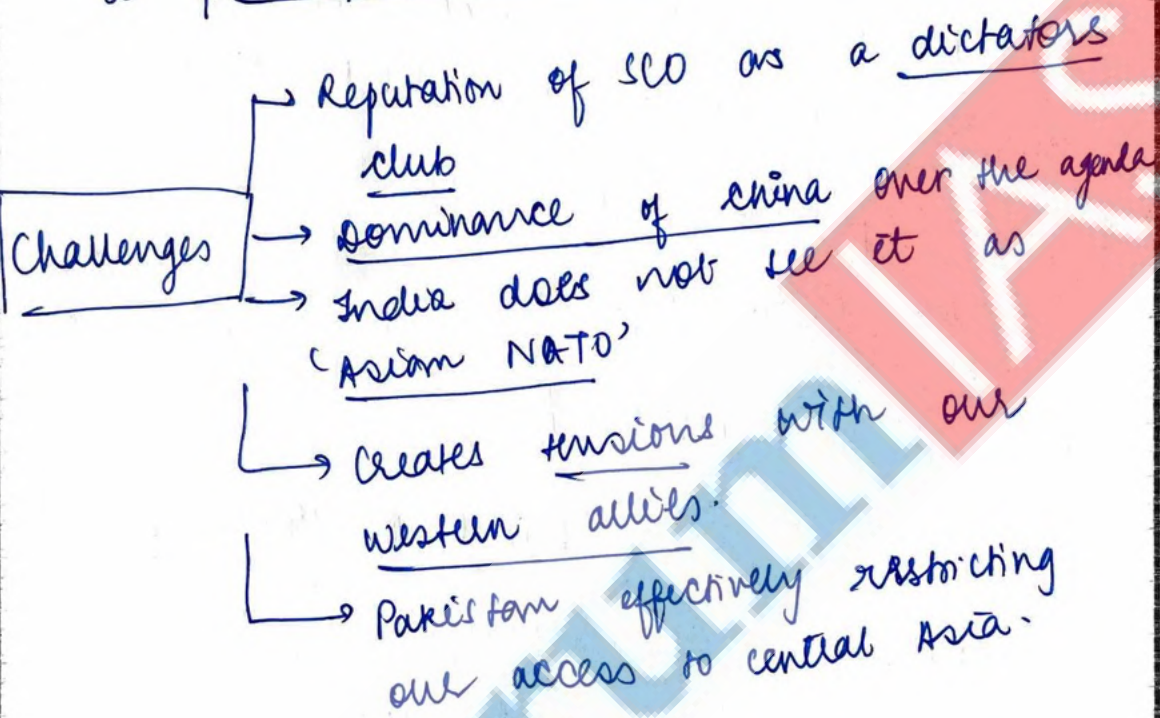 Reputation of SCO as a dictators
club
Challenges
Dominance of China over the agenda
India does not see it as
'Asian NATO'
Creates tensions with our
western allies.
Pakistan effectively restricting
our access to central Asia.
IAS
rum